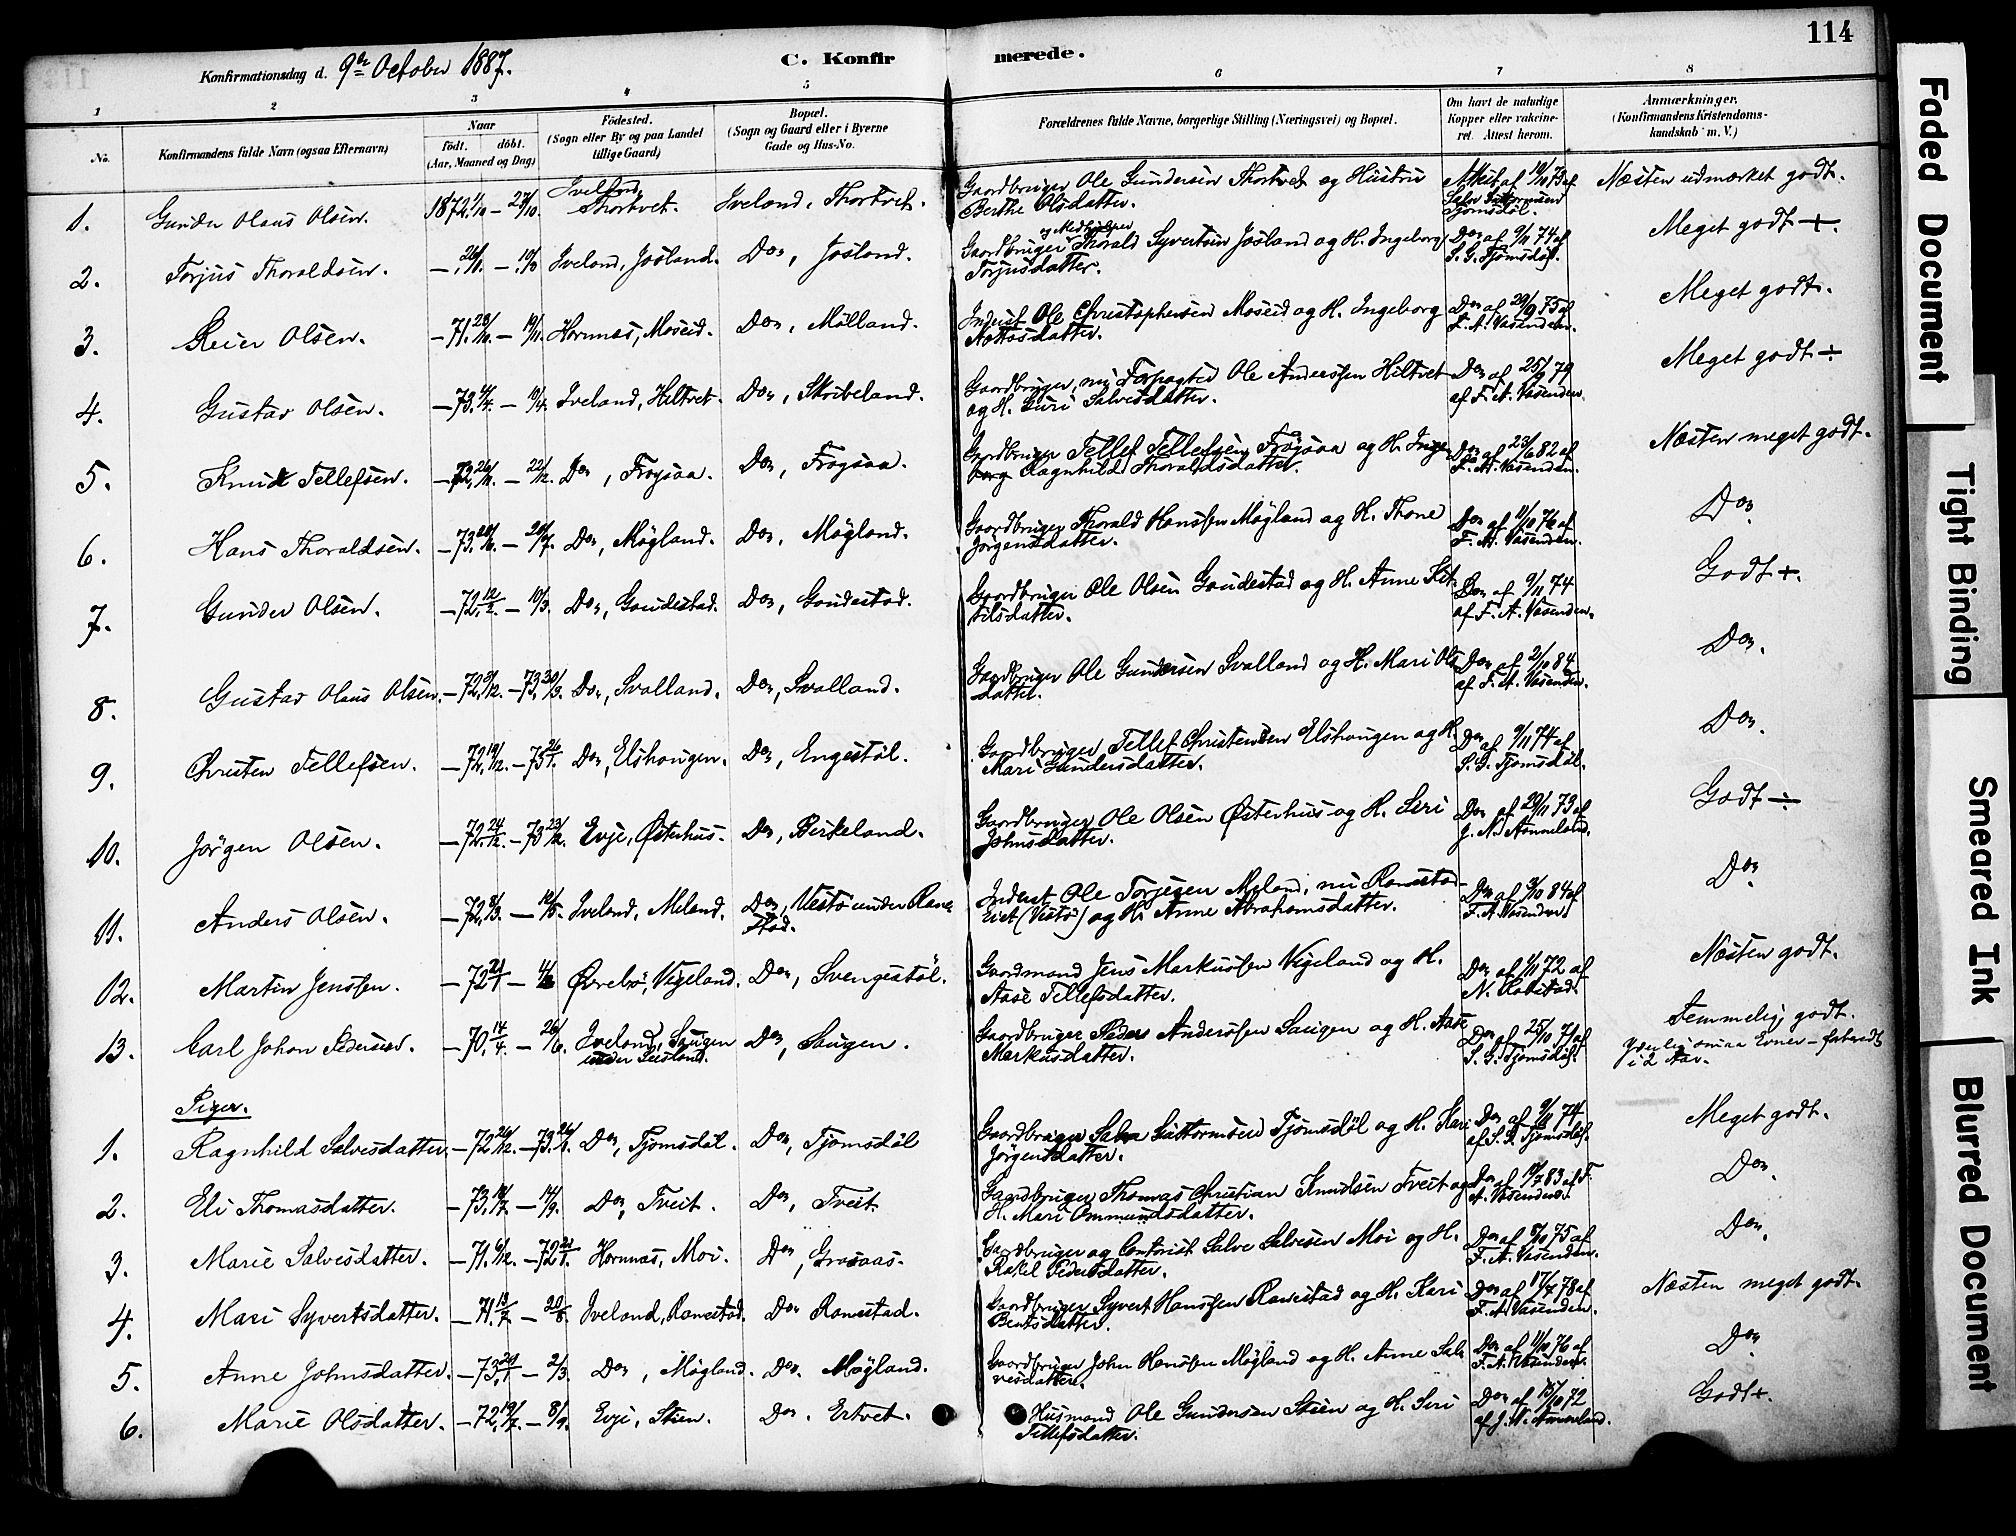 114
Konfirmationsdag d. 9de October 1887.
C. Konfirmerede.
1 2 3 4 5 6 7 8
No.
Konfirmandens fulde Navn (ogsaa Efternavn)
Naar
født. døbt.
(Aar, Maaned og Dag)
Fødested.
(Sogn eller By og paa Landet
tillige Gaard)
Bopæl.
(Sogn og Gaard eller i Byerne
Gade og Hus-No.
Forældrenes fulde Navne, borgerlige Stilling (Næringsvei) og Bopæl.
Om havt de naturlige
Kopper eller vakcine-
ret. Attest herom.
Anmærkninger.
(Konfirmandens Kristendoms-
kundskab m. V.)
1. Gunder Olaus Olsen. 1872 1/10 – 27/10. Iveland, Thortvet. Iveland, Thortvet. Gaardbruger Ole Gundersen Thortvet og Hustru
Berthe Olsdatter. Næsten udmærket godt.
2. Torjus Thoraldsen. Iveland, Josland. Do, Josland. Gaardbruger og Medhjælper Thorald Syvertsen Josland og H. Ingeborg
Torjusdatter. Do af 9/11 74 af
S. G. Tjomsdøl. Meget godt +.
3. Reier Olsen. – 71. Hornnæs, Moseid. Do, Mølland. Inderst Ole Christophersen Moseid og H. Ingeborg
Do af 29/9 75 af
F. A. Vasenden. Meget godt.
4. Gustav Olsen. – 73. Iveland, Hiltvet. Do, Skribeland. Gaardbruger, nu Forpagter Ole Anderssen Hiltvet
og H. Guri Salvesdatter. Do af 25/9 79
af F. A. Vasenden. Meget godt ÷
5. Knud Tellefsen. – 72, 26/11. – 22/12. Do, Frøysaa. Do, Frøysaa. Gaardbruger Tellef Tellefsen Frøysaa og H. Inge-
borg Ragnhild Thoraldsdatter. Do af 23/6 82 af
F. A. Vasenden. Næsten meget godt.
6. Hans Thoraldsen. – 73. Do, Møgland. Do, Møgland. Gaardbruger Thorald Hanssen Møgland og H. Thone
Jørgensdatter. Do af 11/10 76 af
F. A. Vasenden. Do
7. Gunder Olsen. – 72. 12/2. – 10/3. Do, Goudestad. Do, Goudestad. Gaardbruger Ole Olsen Goudestad og H. Anne Ket-
tilsdatter. Do af 9/11 74
af F. A. Vasenden. Godt +.
8. Gustav Olaus Olsen. – 72. – 73. 30/3. Do, Svalland. Do, Svalland. Gaardbruger Ole Gundersen Svalland og H. Mari Ols-
datter. Do af 2/10 84
af F. A. Vasenden. Do.
9. Christen Tellefsen. – 72. 19/12. – 73 26/1. Do, Elshougen. Do, Engestøl. Gaardbruger Tellef Christensen Elshougen og H.
Mari Gundersdatter. Do af 9/11 74 af
S. G. Tjomsdøl. Do.
10. Jørgen Olsen. – 72. 24/12. – 73 23/2. Evje, Østerhus. Do, Birkeland. Gaardbruger Ole Olsen Østerhus og H. Siri
Johnsdatter. Do af 29/11 73 af
Godt ÷
11. Anders Olsen. – 72. Iveland, Meland. Do, Vestø under Rane-
stad. Inderst Ole Torjesen Meland, nu Ranestad-
eiet (Vestø) og H. Anne Abrahamsdatter. Do af 3/10 84 af
F. A. Vasenden. Do
12. Martin Jenssen. – 72 Øvrebø, Vigeland. Do, Svengestøl. Gaardmand Jens Markussen Vigeland og H.
Aase Tellefsdatter. Næsten godt.
13. Carl Johan Pedersen. – 70. 14/4. – 26/6. Iveland, Saugen
Do, Saugen. Gaardbruger Peder Anderssen Saugen og H. Aase
Markusdatter. Do af 25/10 71 af
S. G. Tjomsdøl. Temmelig godt.
Yderlig smaa Evner –
i 2 Aar.
Piger.
1. Ragnhild Salvesdatter. – 72 26/12. – 73. 26/1. Do, Tjomsdøl. Do, Tjomsdøl Gaardbruger Salve Guttormsen Tjomsdøl og H. Kari
Jørgensdatter. Do af 9/11 74
af S. G. Tjomsdøl. Meget godt.
2. Eli Thomasdatter. – 73. – 14/9. Do, Tveit. Do, Tveit Gaardbruger Thomas Christian Knudsen Tveit og
H. Mari Ommundsdatter. A. Vasenden. Do.
3. Marie Salvesdatter. – 71. 6/12. – 72 21/1. Hornnæs, Moi. Do, Graaaas. Gaardbruger og Contorist Salve Salvesen Moi og H.
Rakel Pedersdatter. Do af 8/10 75 af
F. A. Vasenden. Do.
4. Mari Syvertsdatter. – 71. 13/7. – 20/8. Iveland, Ranestad. Do Ranestad. Gaardbruger Syvert Hanssen Ranestad og H. Kari
Bentsdatter. Do af 17/7 78 af
F. A. Vasenden. Næsten meget godt.
5. Anne Johnsdatter. – 73. 29/1. – 2/3. Do, Møgland. Do. Møgland. Gaardbruger John Hanssen Møgland og H. Anne Sal-
vesdatter. Do af 11/10 76 af
F. A. Vasenden. Do
6. Marie Olsdatter. – 72, 19/7. – 8/9. Evje, Steen. Do. Ertvet. Husmand Ole Gundersen Steen og H. Siri
Tellefsdatter. Do af 15/10 72
Godt +.
Faded Document
Tight Binding
Smeared Ink
Blurred Document